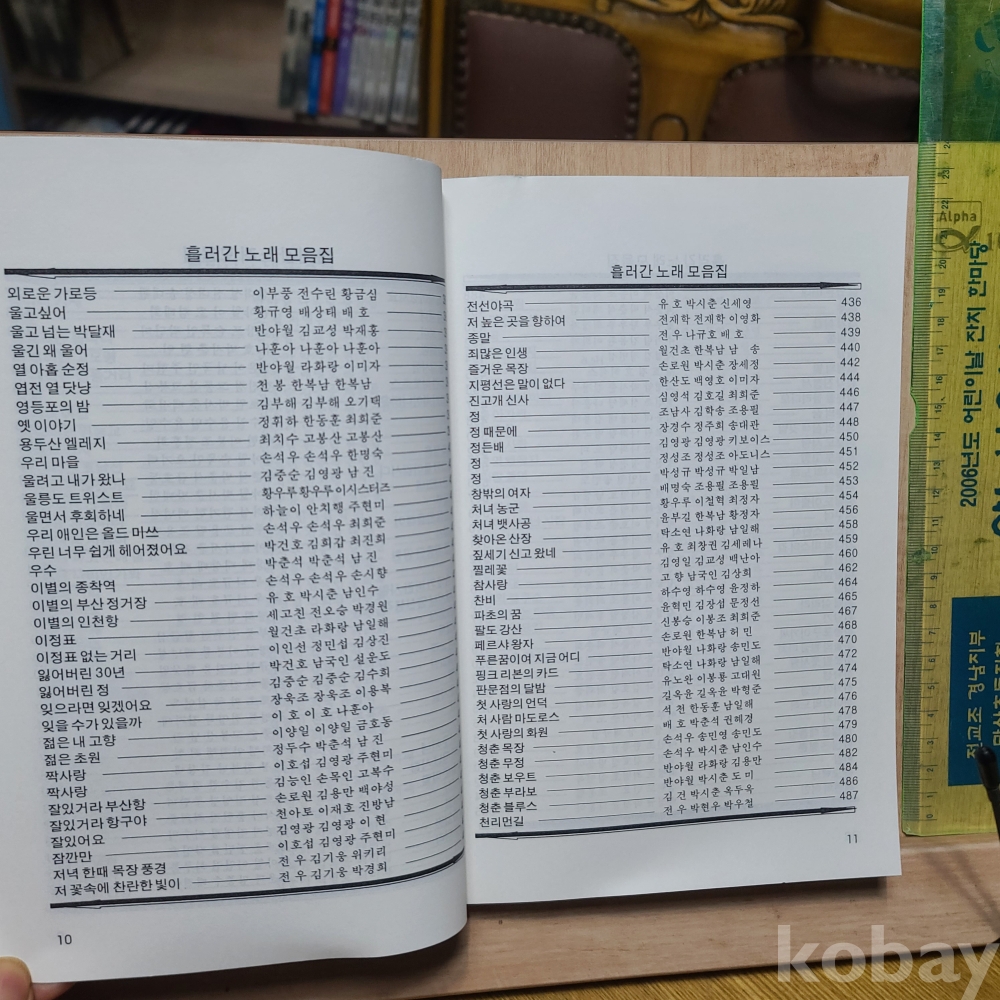 흘러간 노래 모음집
외로운 가로등 이부풍 전수린 황금심
울고싶어 황규영 배상태 배 호
울고 넘는 박달재 반야월 김교성 박재홍
울긴 왜 울어 나훈아 나훈아 나훈아
열 아홉 순정 반야월 라화랑 이미자
엽전 열 닷냥 천 봉 한복남 한복남
영등포의 밤 김부해 김부해 오기택
옛 이야기 정휘하 한동훈 최희준
용두산 엘레지 최치수 고봉산 고봉산
우리 마을 손석우 손석우 한명숙
울려고 내가 왔나 김중순 김영광 남 진
울릉도 트위스트 황우루 황우루 이시스터즈
울면서 후회하네 하늘이 안치행 주현미
우리 애인은 올드 미쓰 손석우 손석우 최희준
우린 너무 쉽게 헤어졌어요 박건호 김희갑 최진희
우수 박춘석 박춘석 남 진
이별의 종착역 손석우 손석우 손시향
이별의 부산 정거장 유 호 박시춘 남인수
이별의 인천항 세고친 전오승 박경원
이정표 월건초 라화랑 남일해
이정표 없는 거리 이인선 정민섭 김상진
잃어버린 30년 박건호 남국인 설운도
잃어버린 정 김중순 김중순 김수희
잊으라면 잊겠어요 장욱조 장욱조 이용복
잊을 수가 있을까 이 호 이 호 나훈아
젊은 내 고향 이양일 이양일 금호동
젊은 초원 정두수 박춘석 남 진
짝사랑 이호섭 김영광 주현미
짝사랑 김능인 손목인 고복수
잘있거라 부산항 손로원 김용만 백야성
잘있거라 항구야 천아토 이재호 진방남
잘있어요 김영광 김영광 이 현
잠깐만 이호섭 김영광 주현미
저녁 한때 목장 풍경 전 우 김기웅 위키리
저 꽃속에 찬란한 빛이 전 우 김기웅 박경희
10
흘러간 노래 모음집
전선야곡 유 호 박시춘 신세영 436
저 높은 곳을 향하여 전재학 전재학 이영화 438
종말 전 우 나규호 배 호 439
죄많은 인생 월건초 한복남 남 송 440
즐거운 목장 손로원 박시춘 장세정 442
지평선은 말이 없다 한산도 백영호 이미자 444
진고개 신사 심영석 김호길 최희준 446
정 조남사 김학송 조용필 447
정 때문에 장경수 정주희 송대관 448
정든배 김영광 김영광 키보이스 450
정 정성조 정성조 아도니스 451
정 박성규 박성규 박일남 452
창밖의 여자 배명숙 조용필 조용필 453
처녀 농군 황우루 이철혁 최정자 454
처녀 뱃사공 윤부길 한복남 황정자 456
찾아온 산장 탁소연 나화랑 남일해 458
짚세기 신고 왔네 유 호 최창권 김세레나 459
찔레꽃 김영일 김교성 백난아 460
참사랑 고 향 남국인 김상희 462
찬비 하수영 하수영 윤정하 464
파초의 꿈 윤혁민 김장섭 문정선 465
팔도 강산 신봉승 이봉조 최희준 467
페르샤 왕자 손로원 한복남 허 민 468
푸른꿈이여 지금 어디 반야월 나화랑 송민도 470
핑크 리본의 카드 탁소연 나화랑 남일해 472
판문점의 달밤 유노완 이봉룡 고대원 474
첫 사랑의 언덕 길옥윤 길옥윤 박형준 475
처 사람 마도로스 석 천 한동훈 남일해 476
첫 사랑의 화원 배 호 박춘석 권혜경 478
청춘 목장 손석우 송민영 송민도 479
청춘 무정 손석우 박시춘 남인수 480
청춘 보우트 반야월 라화랑 김용만 482
청춘 부라보 반야월 박시춘 도 미 484
청춘 블루스 김 건 박시춘 옥두옥 486
천리먼길 전 우 박현우 박우철 487
11
Alpha
2006년도 어린이날 잔치 한마당
전교조 경남지부
kobay